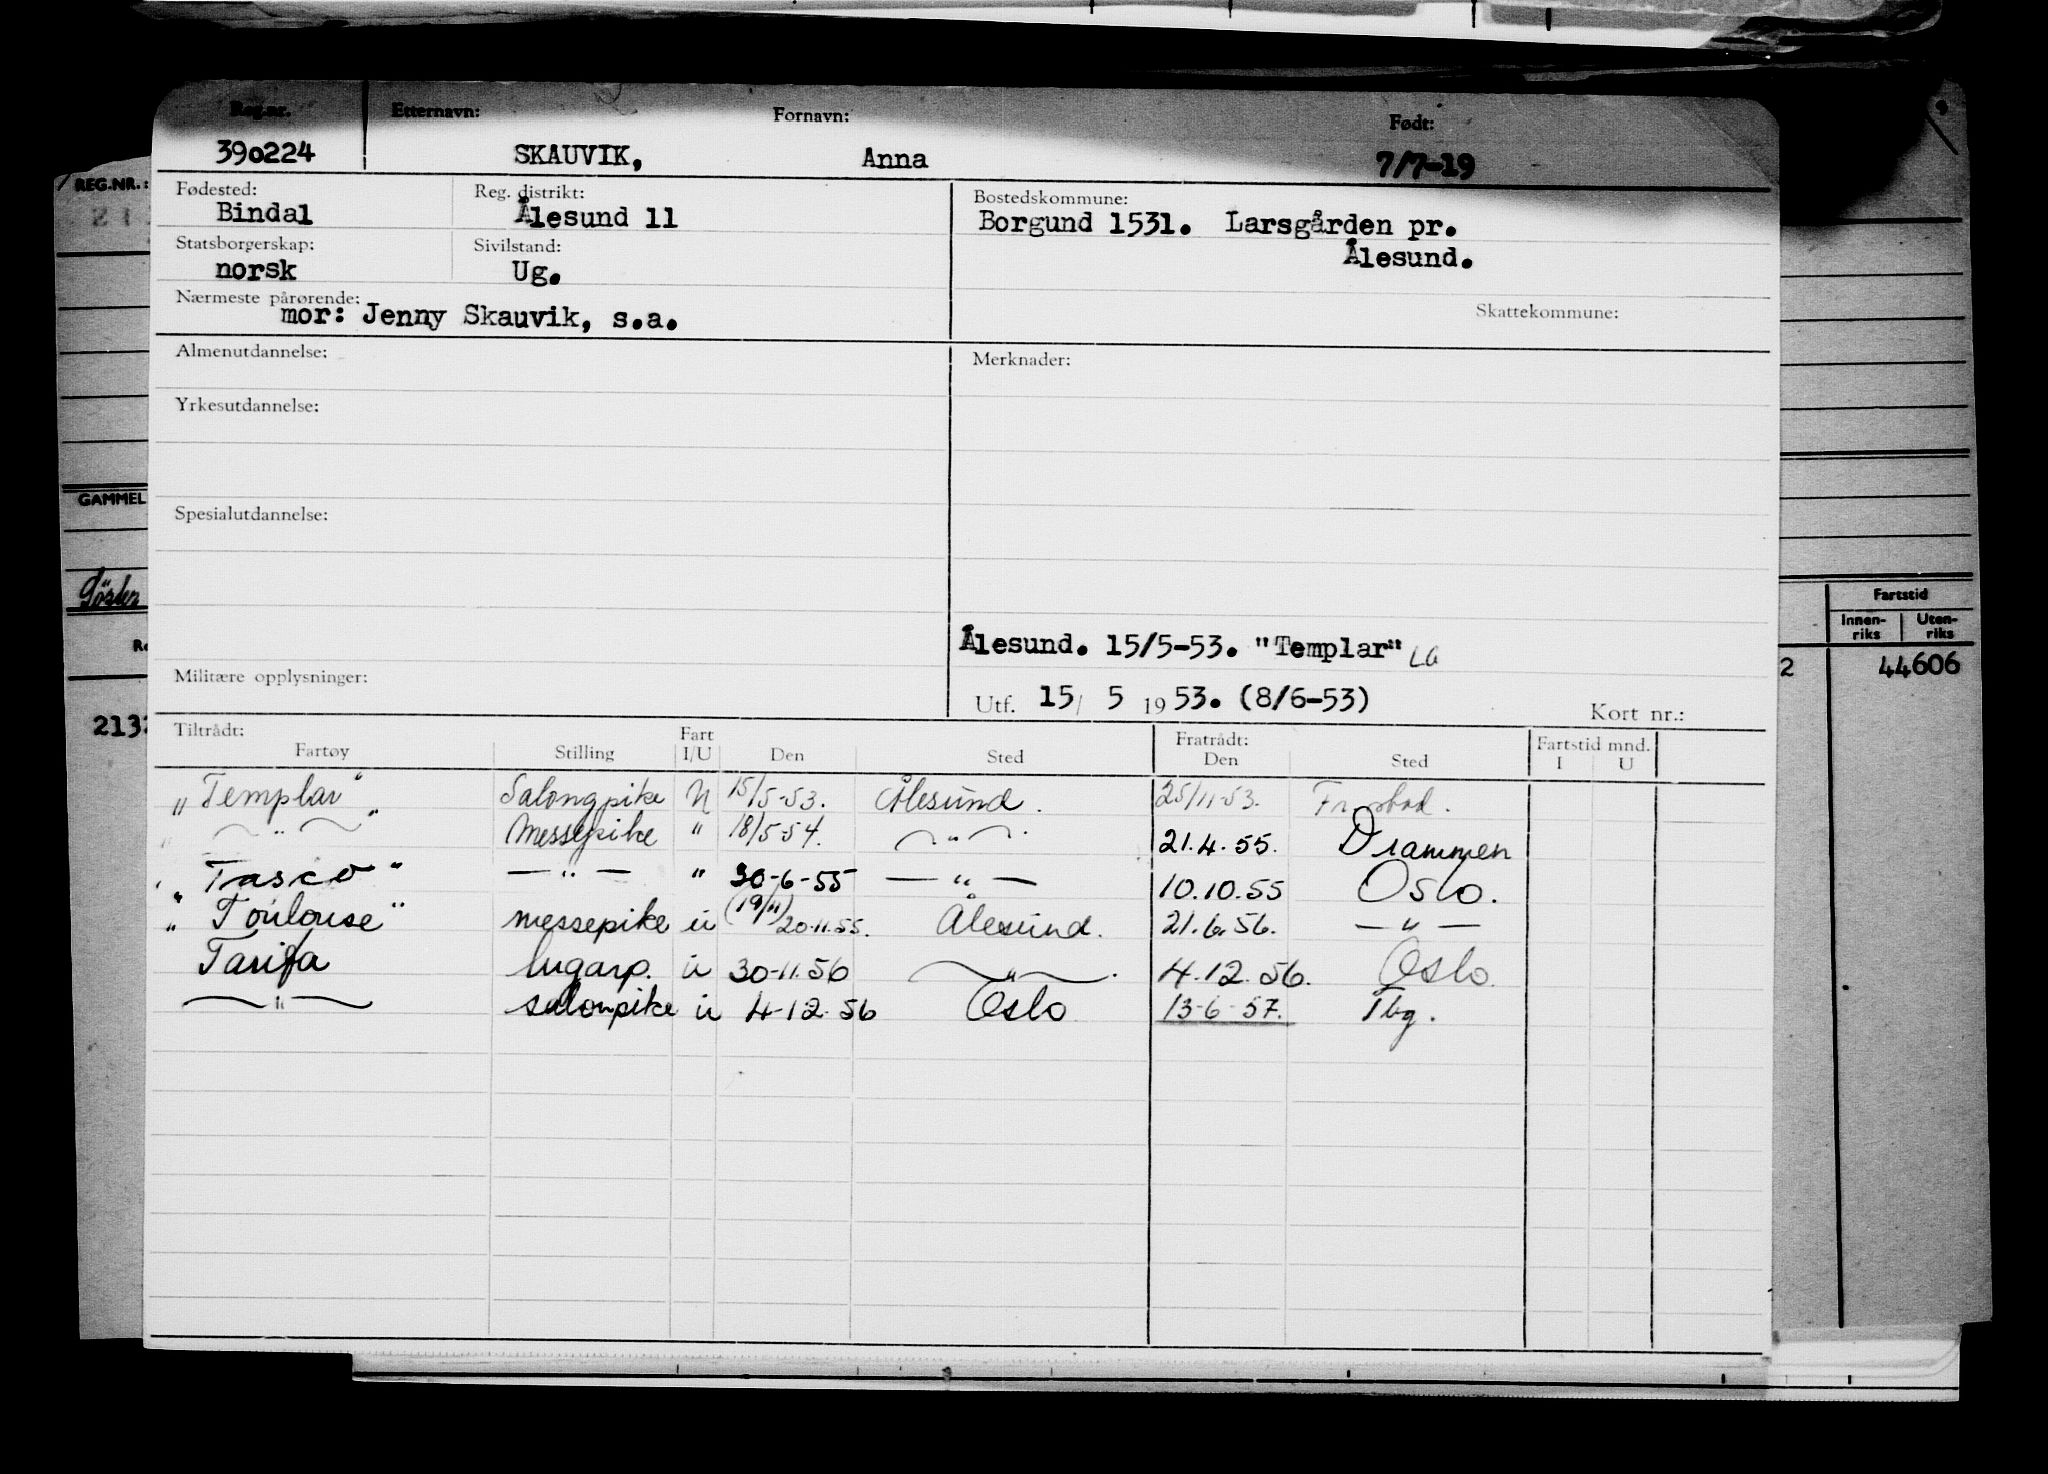 Reg.nr. Etternavn: Fornavn: Født:
39o224 SKAUVIK, Anna 7/7-19
Fødested: Reg. distrikt: Bostedskommune:
Bindal Ålesund 11 Borgund 1531. Larsgården pr.
Statsborgerskap: Sivilstand: Ålesund.
norsk Ug.
Nærmeste pårørende: Skattekommune:
mor: Jenny Skauvik, s.a.
Almenutdannelse: Merknader:
Yrkesutdannelse:
Spesialutdannelse:
Ålesund. 15/5-53. "Templar" LG
Militære opplysninger:
Utf. 15/ 5 1953. (8/6-53) Kort nr.:
Tiltrådt: Fart Fratrådt: Fartstid mnd.
Fartøy Stilling I/U Den Sted Den Sted I U
"Templar" Salongpike U 15/5-53. Ålesund. 25/11-53.
— " — Messepike " 18/5-54. — " — 21.4.55. Drammen
"Tasco" — " — " 30-6-55 — " — 10.10.55 Oslo.
"Toulouse" messepike u (19/11) 20.11.55. Ålesund. 21.6.56. — " —
Tarifa lugarp. u 30-11.56 — " — . 4.12.56. Oslo
— " — salonpike u 4-12.56 Oslo 13-6-57. Tbg.
REG.NR.:
GAMMEL
2132
Fartstid
Innen-riks Uten-riks
2 44606